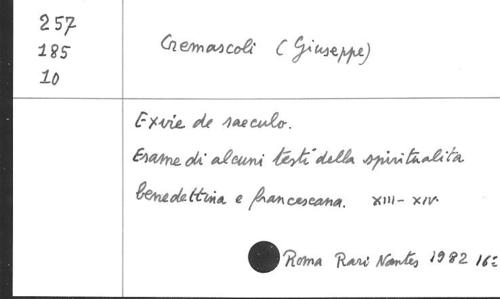 257
185
10
Cremascoli (Giuseppe)
Exvie de saeculo.
Esame di alcuni testi della spiritualita
benedettina e francescana. XIII-XIV.
Roma Rari Nantes 1982 16º